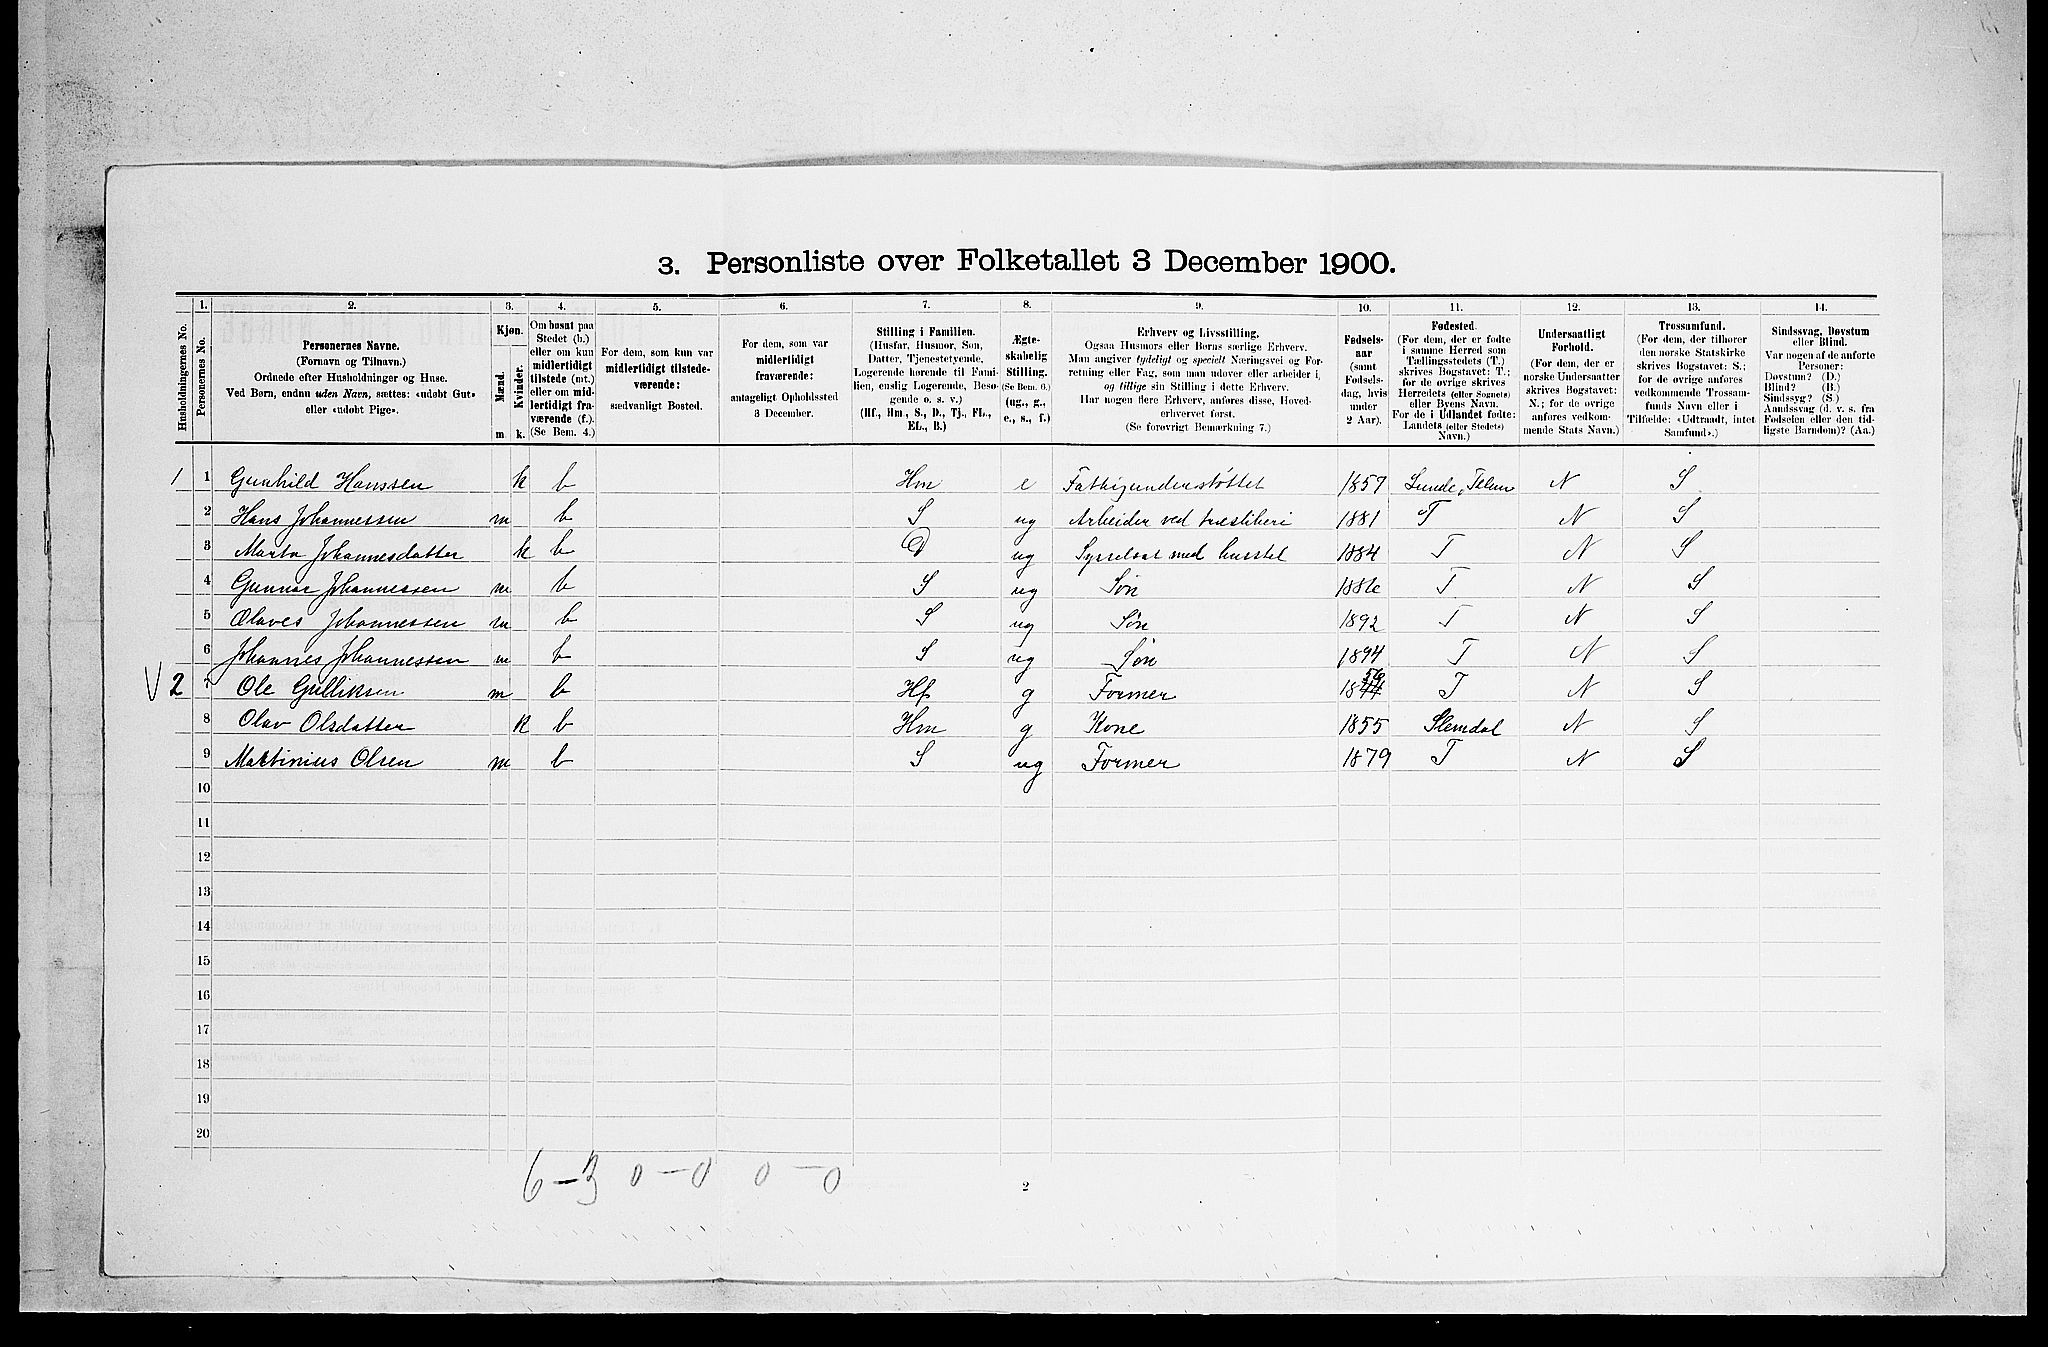 3. Personliste over Folketallet 3 December 1900.
1. 2. 3. 4. 5. 6. 7. 8. 9. 10. 11. 12. 13. 14.
Husholdningernes No.
Personernes No.
Personernes Navne.
(Fornavn og Tilnavn.)
Ordnede efter Husholdninger og Huse.
Ved Børn, endnu uden Navn, sættes: «udøbt Gut»
eller «udøbt Pige».
Kjøn.
Mænd.
Kvinder.
m. k.
Om bosat paa
Stedet (b.)
eller om kun
midlertidigt
tilstede (mt.)
eller om mid-
lertidigt fra-
værende (f.).
(Se Bem. 4.)
For dem, som kun var
midlertidigt tilstede-
værende:
sædvanligt Bosted.
For dem, som var
midlertidigt
fraværende:
antageligt Opholdssted
3 December.
Stilling i Familien.
(Husfar, Husmor, Søn,
Datter, Tjenestetyende,
Logerende hørende til Fami-
lien, enslig Logerende, Besø-
gende o. s. v.)
(Hf., Hm., S., D., Tj., FL.,
EL., B.)
Ægte-
skabelig
Stilling.
(Se Bem. 6.)
(ug., g.,
e., s., f.)
Erhverv og Livsstilling.
Ogsaa Husmors eller Børns særlige Erhverv.
Man angiver tydeligt og specielt Næringsvei og For-
retning eller Fag, som man udøver eller arbeider i,
og tillige sin Stilling i dette Erhverv.
Har nogen flere Erhverv, anføres disse, Hoved-
erhvervet først.
(Se forøvrigt Bemærkning 7.)
Fødsels-
aar
(samt
Fødsels-
dag, hvis
under
2 Aar).
Fødested.
(For dem, der er fødte
i samme Herred som
Tællingsstedets (T.)
skrives Bogstavet: T.;
for de øvrige skrives
Herredets (eller Sognets)
eller Byens Navn.
For de i Udlandet fødte:
Landets (eller Stedets)
Navn.)
Undersaatligt
Forhold.
(For dem, der er
norske Undersaatter
skrives Bogstavet:
N.; for de øvrige
anføres vedkom-
mende Stats Navn.)
Trossamfund.
(For dem, der tilhører
den norske Statskirke
skrives Bogstavet: S.;
for de øvrige anføres
vedkommende Trossam-
funds Navn eller i
Tilfælde: «Udtraadt, intet
Samfund».)
Sindssvag, Døvstum
eller Blind.
Var nogen af de anførte
Personer:
Døvstum? (D.)
Blind? (B.)
Sindssyg? (S.)
Aandssvag (d. v. s. fra
Fødselen eller den tid-
ligste Barndom)? (Aa.)
1 1 Gunhild Hanssen k b Hm e Fattigunderstøttet 1857 Lunde, Telem N S
2 Hans Johannessen m b S ug Arbeider ved træsliberi 1881 T N S
3 Marta Johannesdatter k b D ug Sysselsat med husstel 1884 T N S
4 Gunnar Johannessen m b S ug Søn 1886 T N S
5 Olaves Johannessen m b S ug Søn 1892 T N S
6 Johannes Johannessen m b S ug Søn 1894 T N S
V 2 7 Ole Gulliksen m b Hf g Former 18 T N S
8 Olav Olsdatter k b Hm g Kone 1855 Slemdal N S
9 Martinius Olsen m b S ug Former 1879 T N S
10
11
12
13
14
15
16
17
18
19
20
6 – 3 0 – 0 0 – 0
2